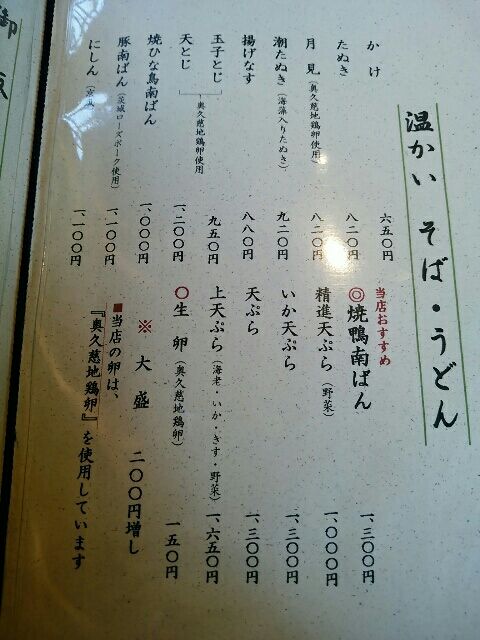 温かい そば・うどん
かけ 六五〇円
たぬき 八二〇円
月見(奥久慈地鶏卵使用) 八二〇円
潮たぬき(海藻入りたぬき) 九二〇円
揚げなす 八八〇円
玉子とじ 九五〇円
天とじ 一、二〇〇円
奥久慈地鶏卵使用
焼ひな鳥南ばん 一、〇〇〇円
豚南ばん(茨城ローズポーク使用) 一、二〇〇円
にしん 一、一〇〇円
当店おすすめ
◎焼鴨南ばん 一、三〇〇円
精進天ぷら(野菜) 一、〇〇〇円
いか天ぷら 一、三〇〇円
天ぷら 一、三〇〇円
上天ぷら(海老・いか・きす・野菜) 一、六五〇円
〇生卵(奥久慈地鶏卵) 一五〇円
※大盛 二〇〇円増し
■当店の卵は、
『奥久慈地鶏卵』を使用しています
御